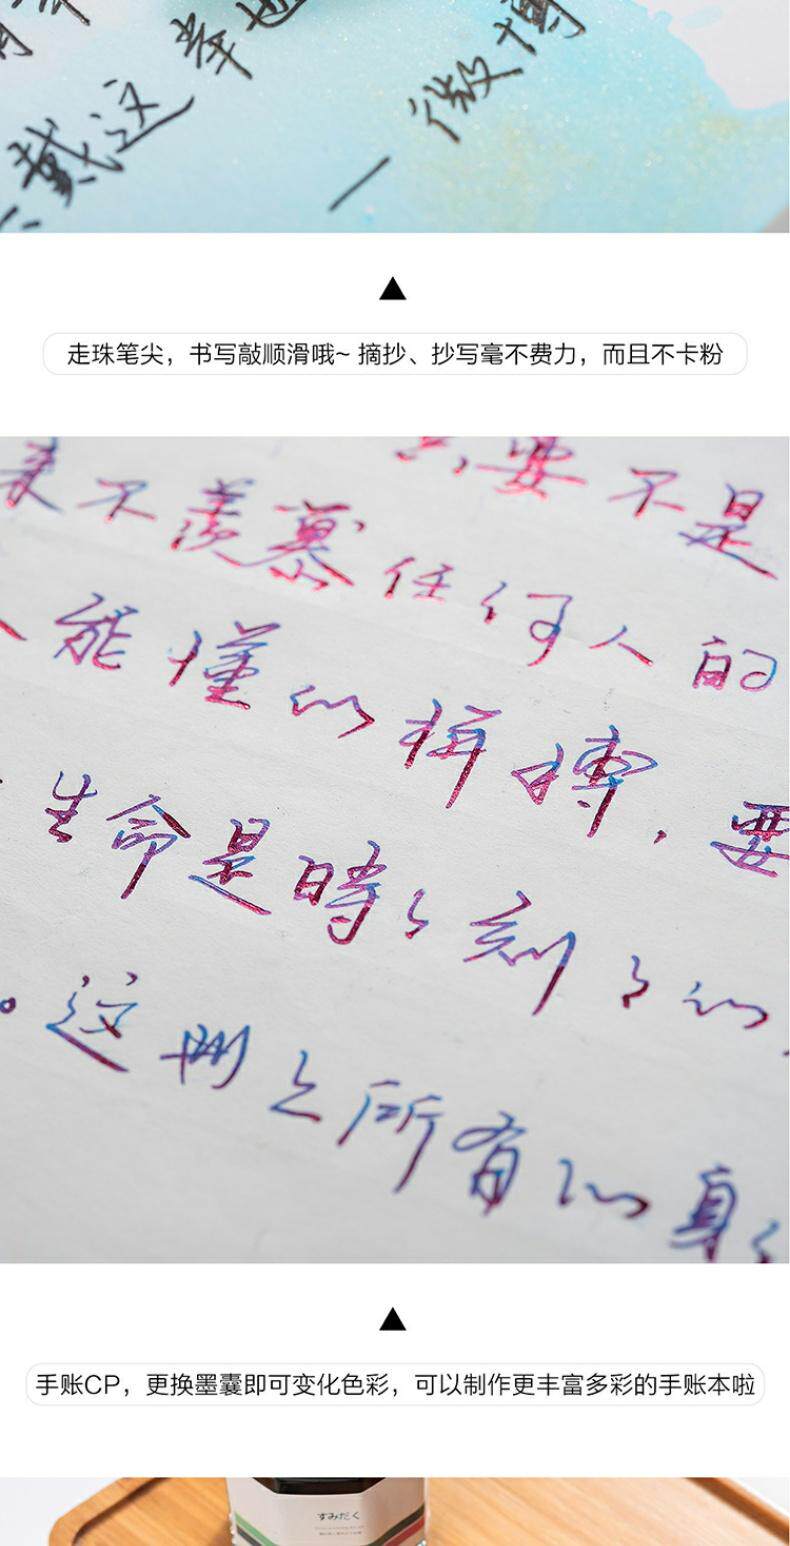 幸也
戴这
一微博
走珠笔尖，书写敲顺滑哦~ 摘抄、抄写毫不费力，而且不卡粉
要不是
来不羡慕任何人的
人能懂的拼搏，要
生命是時々刻々的
。这
所有的身
手账CP，更换墨囊即可变化色彩，可以制作更丰富多彩的手账本啦
すみだく